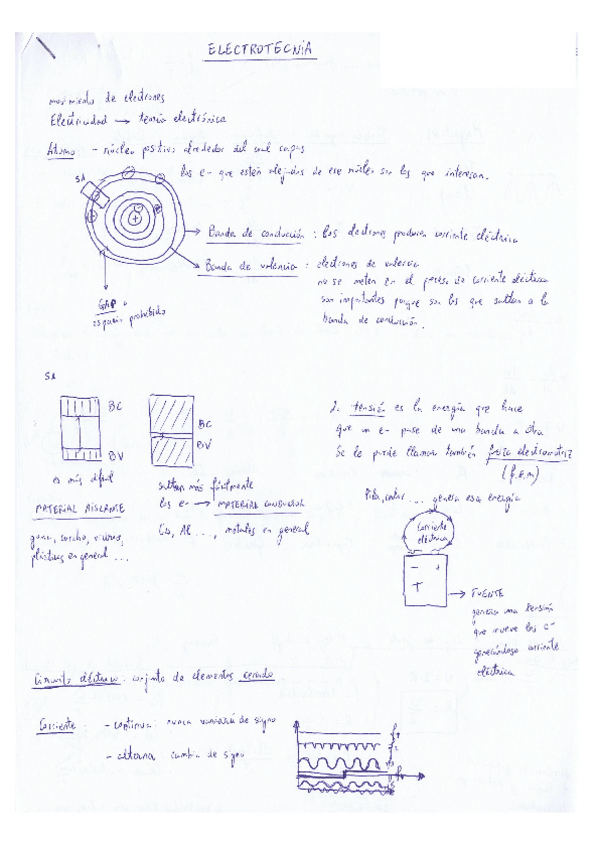 ELECTROTECNIA
movimiento de electrones
Electricidad → teoría electrónica
Átomo: - núcleo positivo alrededor del cual capas
los e- que estén alejados de ese núcleo son los que interesan.
SA
Banda de conducción: los electrones producen corriente eléctrica
Banda de valencia: electrones de valencia
no se meten en el proceso de corriente eléctrica
son importantes porque son los que saltan a la
banda de conducción.
GAP o
espacio prohibido
SA
BC
BV
BC
BV
es más difícil
MATERIAL AISLANTE
goma, corcho, vidrios,
plásticos en general ...
saltan más fácilmente
los e- → MATERIAL CONDUCTOR
Cu, Al ..., metales en general
tensión es la energía que hace
que un e- pase de una banda a otra
Se le puede llamar también fuerza electromotriz
(f.e.m)
Pila, ... genera esa energía
Corriente
eléctrica
- +
T
→ FUENTE
genera una tensión
que mueve los e-
generándose corriente
eléctrica
Circuito eléctrico: conjunto de elementos cerrado
Corriente: - continua: nunca variará de signo
- alterna: cambia de signo